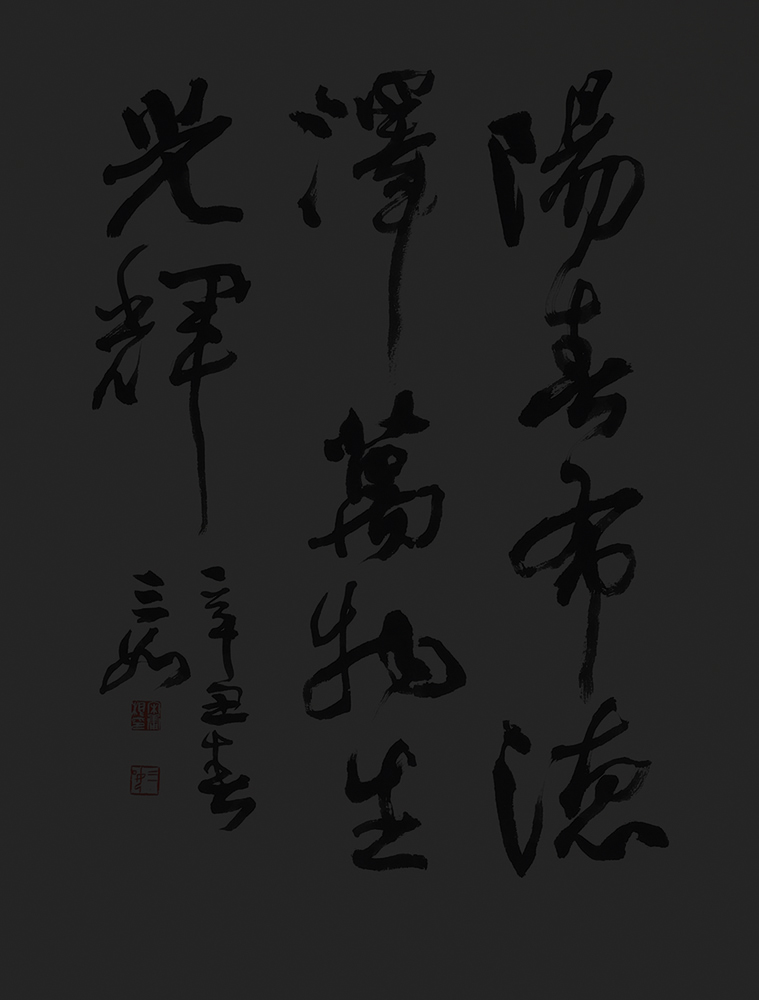 陽春布德
澤萬物生
光輝
辛丑春
三如